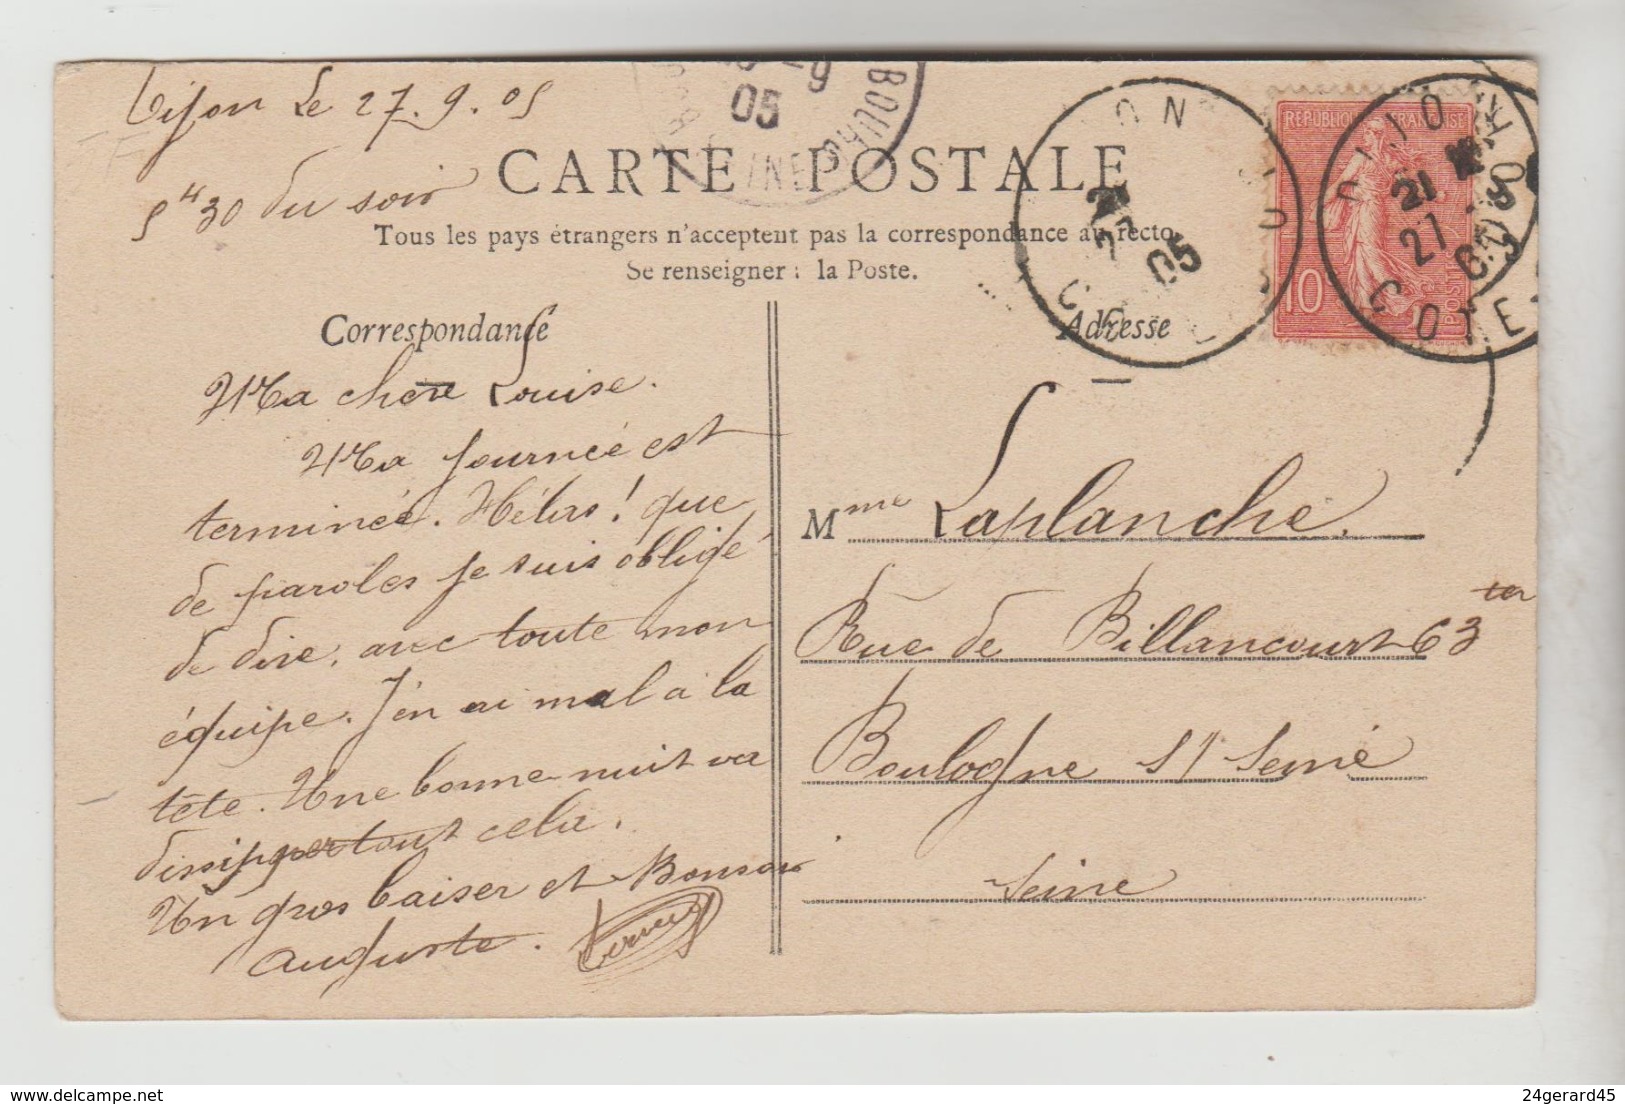 Dijon Le 27.9.05
5 H 30 du soir
CARTE POSTALE
Tous les pays étrangers n'acceptent pas la correspondance au recto
Se renseigner : la Poste.
Correspondance
Ma chere Louise.
Ma journée est
terminée. Hélas! que
de paroles je suis obligé
de dire, avec toute mon
équipe. J'en ai mal à la
tête. Une bonne nuit va
dissipper tout cela.
Un gros baiser et Bonsoir
Auguste.
Adresse
Mme Laplanche.
Rue de Billancourt 63 ter
Boulogne S/ Seine
Seine
REPUBLIQUE FRANÇAISE
10
POSTES
DIJON
COTE
21
27
05
-9
05
BOULOG
SEINE
24gerard45